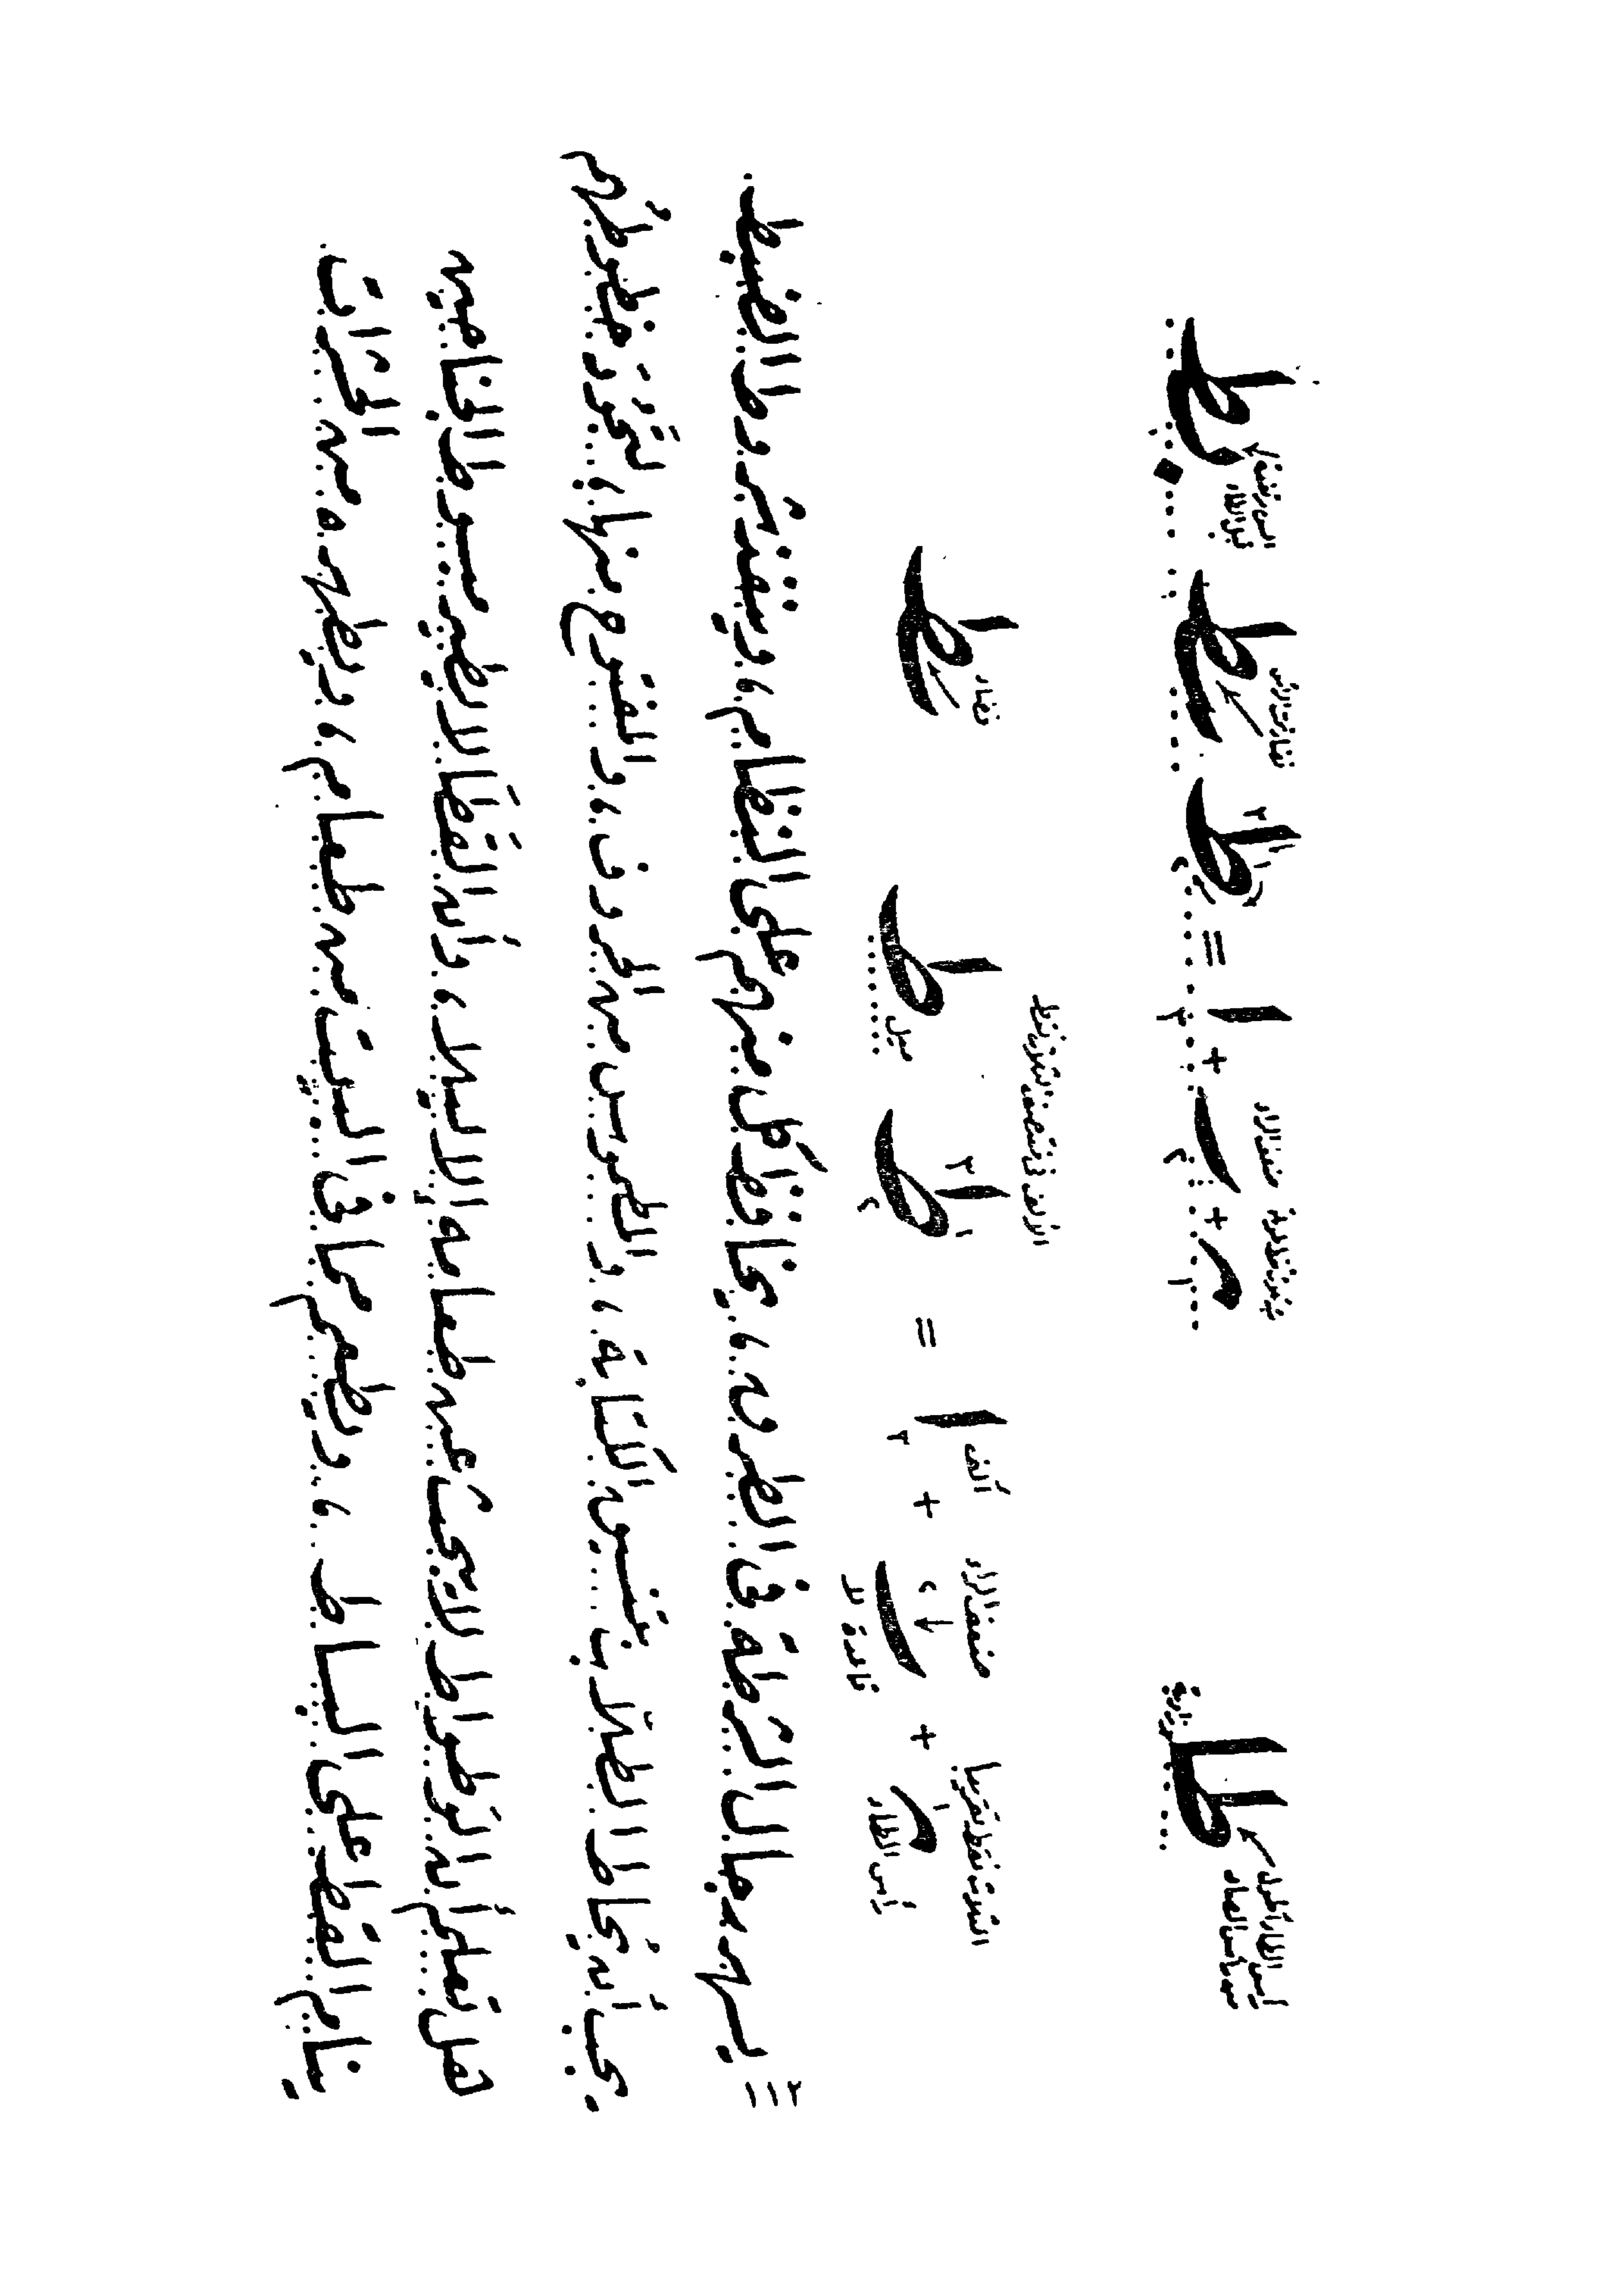 رأس الطاء أطول
من رأس الصاد
طا
ضعف الراء
ر + ـ + ا = ط
رأس الطاء
الثلاث نقط تقريبا
ضعف الراء
ألف
الألف فى منتصف الثلاث نقط
ميل
فضاء
٣ = يسهر رجال الشرطة فى الطرق ، يحافظ كل منهم على النظام ، وينفذ شروط الضبط.
يجب أن يُحاط الطلاب بتنسيق الكتابة ، والطموس من الحروف ، والمفتوح منها ، لتجود خطوطهم
هل تعلم أن الوطواط لا يبحث عن طعامه إلا ليلا ، وأن القطا لا يطير مبسوط الجناحين
ينام القط على البساط ، ويطعم مما فى البيت من طعام ، ويطهره من الحشرات .